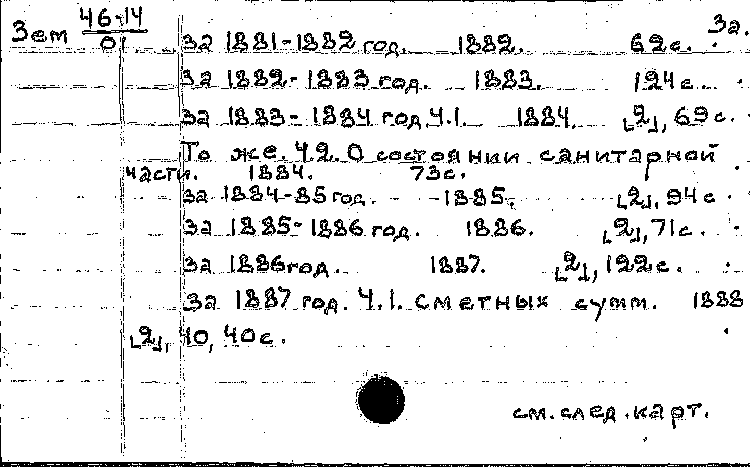 Зем 46-14
01
3а.
за 1881-1882 год. 1882. 62с.
за 1882-1883 год. 1883. 124с.
за 1883-1884 год. Ч.1. 1884. [2], 69с.
То же. Ч.2. О состоянии санитарной
части. 1884. 73с.
за 1884-85 год. 1885. [2], 94с.
за 1885-1886 год. 1886. [2], 71с.
за 1886 год. 1887. [2], 122с.
за 1887 год. Ч.1. Сметных сумм. 1888
[2], 40, 40с.
см. след. карт.